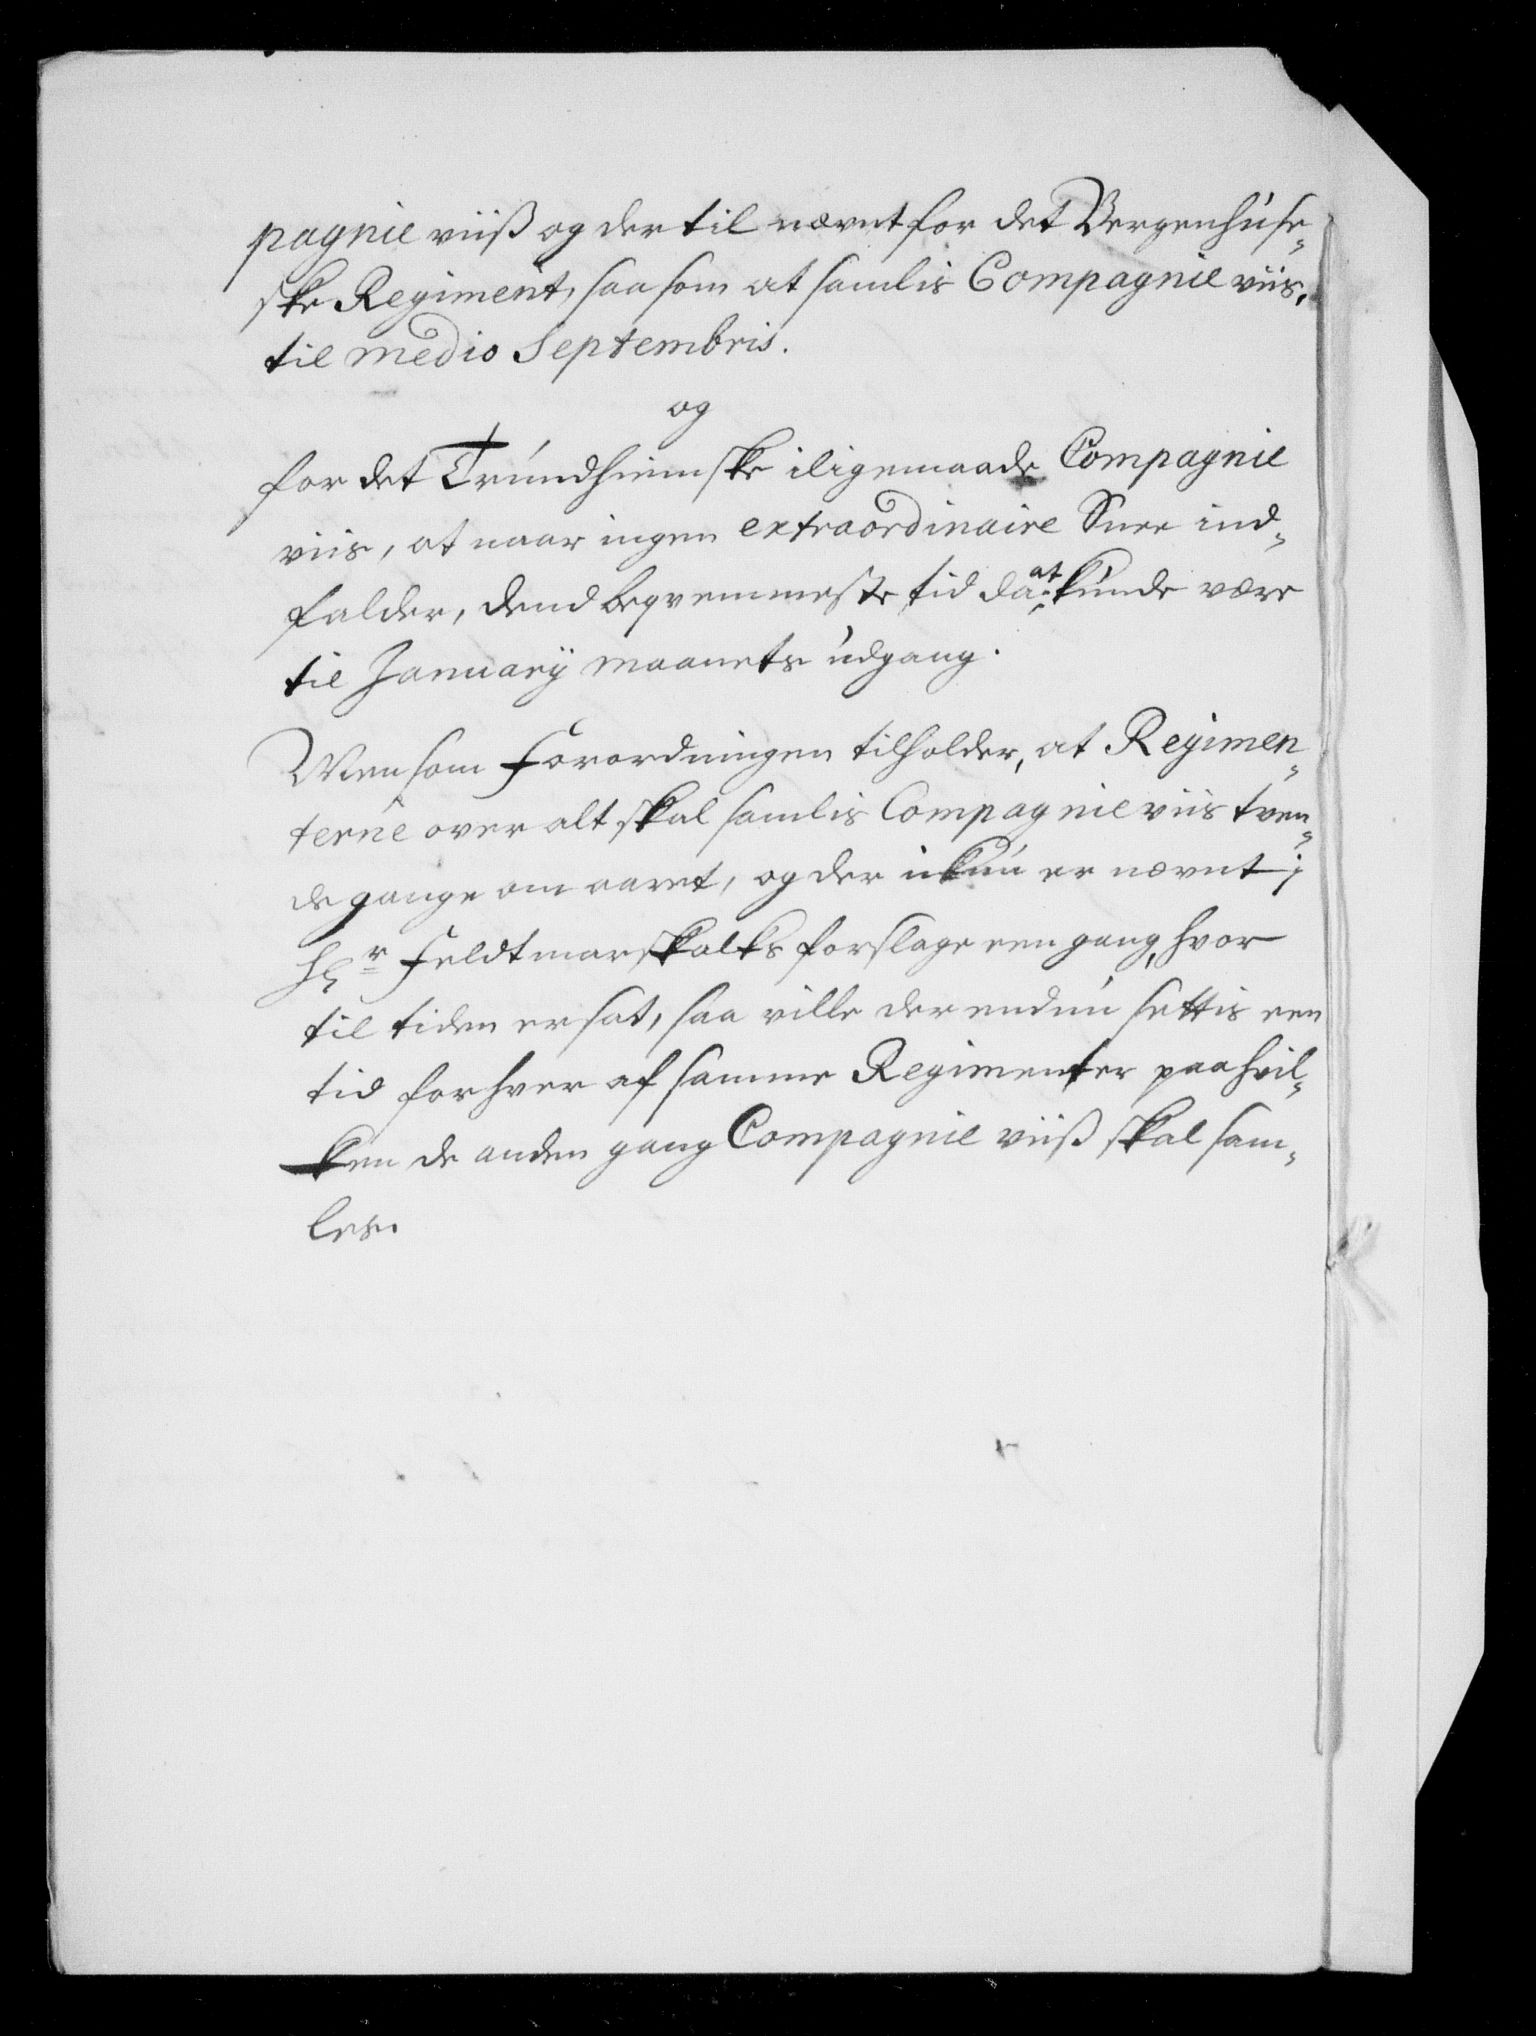 pagnie viiß og der til nævnt for det Bergenhuse¬
ske Regiment, saa som at samlis Compagnie viis,
til medio Septembris.
og
for det Trundhiemske iligemaade Compagnie
viis, at naar ingen extraordinaire Snee ind¬
falder, dend beqvemmeste tid da at kunde være
til Januarij maanets udgang.
Men som Forordningen tilholder, at Regimen¬
terne over alt skal samlis Compagnie viis tven¬
de gange om aaret, og der ikun er nævnt i
Hr Feldtmarskalks forslage een gang, hvor
til tiden er sat, saa ville der endnu settis een
tid for hver af samme Regimenter paa hvil¬
ken de anden gang Compagnie viiß skal sam¬
les.